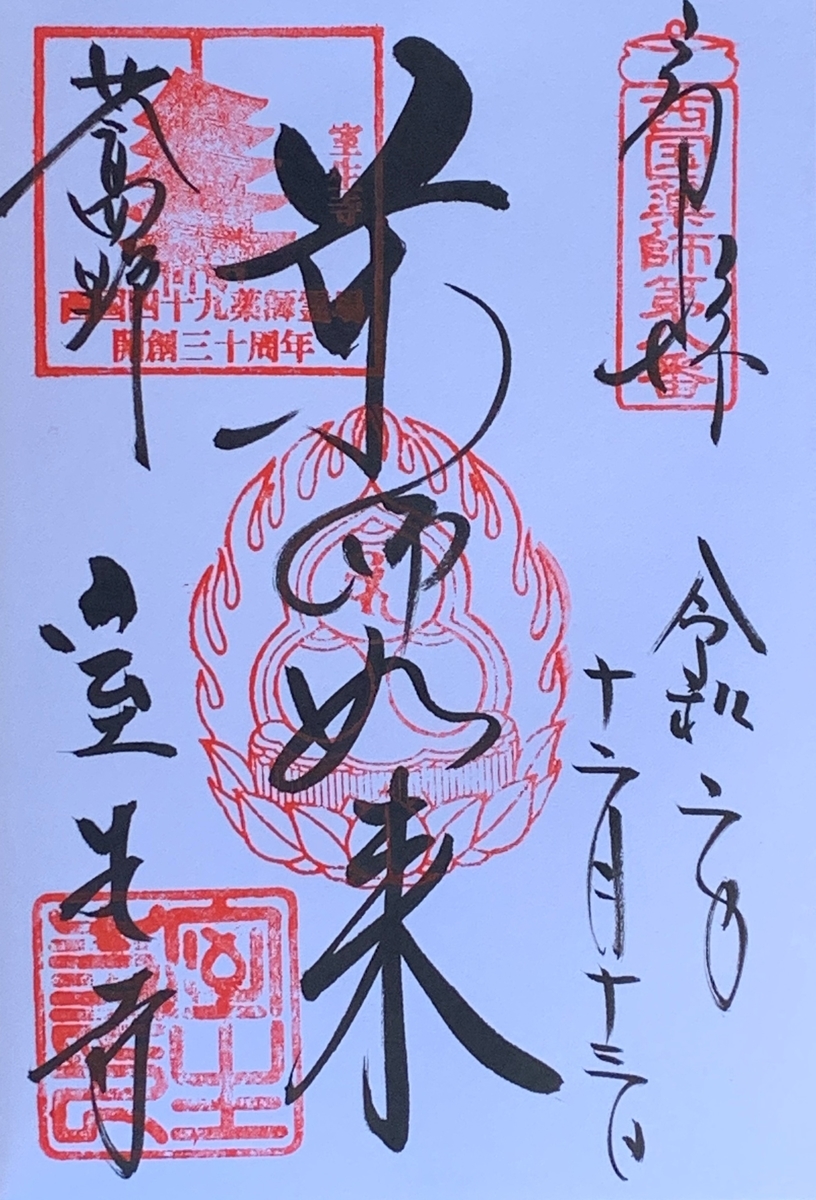 奉拝
西国薬師第八番
令和二年
十二月十三日
薬師如来
女人高野
室生寺
西国四十九薬師霊場
開創三十周年
室生寺